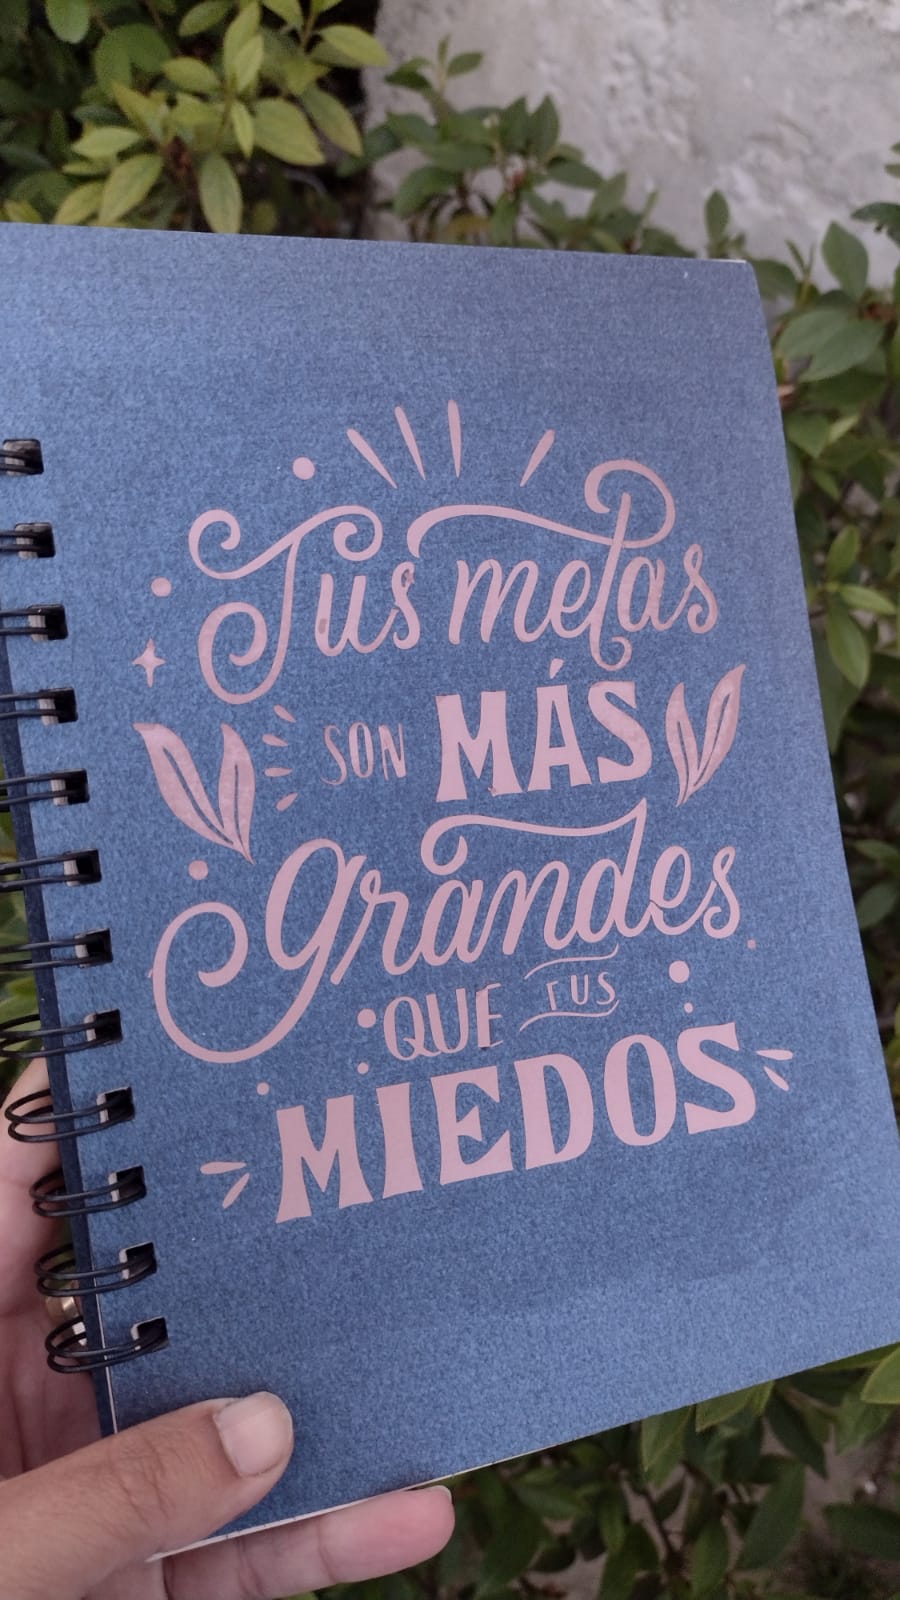 Tus metas
SON MÁS
Grandes
QUE TUS
MIEDOS